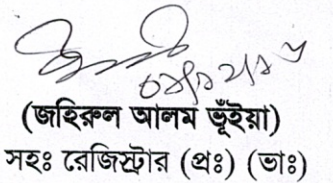 (জহিরুল আলম ভূঁইয়া)
সহঃ রেজিস্ট্রার (প্রঃ) (ভাঃ)